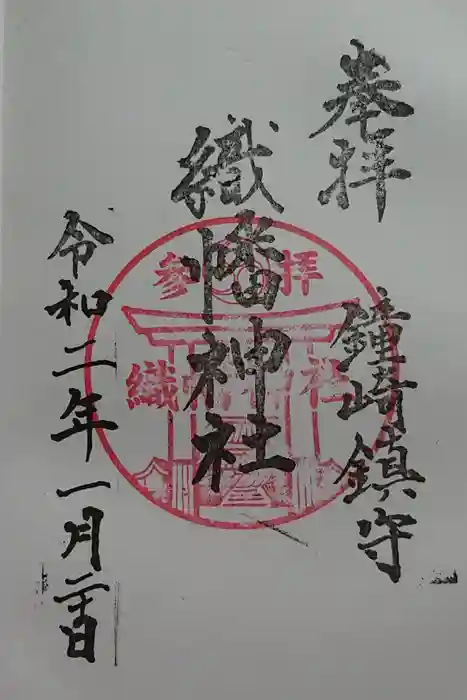 奉拝
鐘崎鎮守
織幡神社
参拝
織幡神社
令和二年一月二日